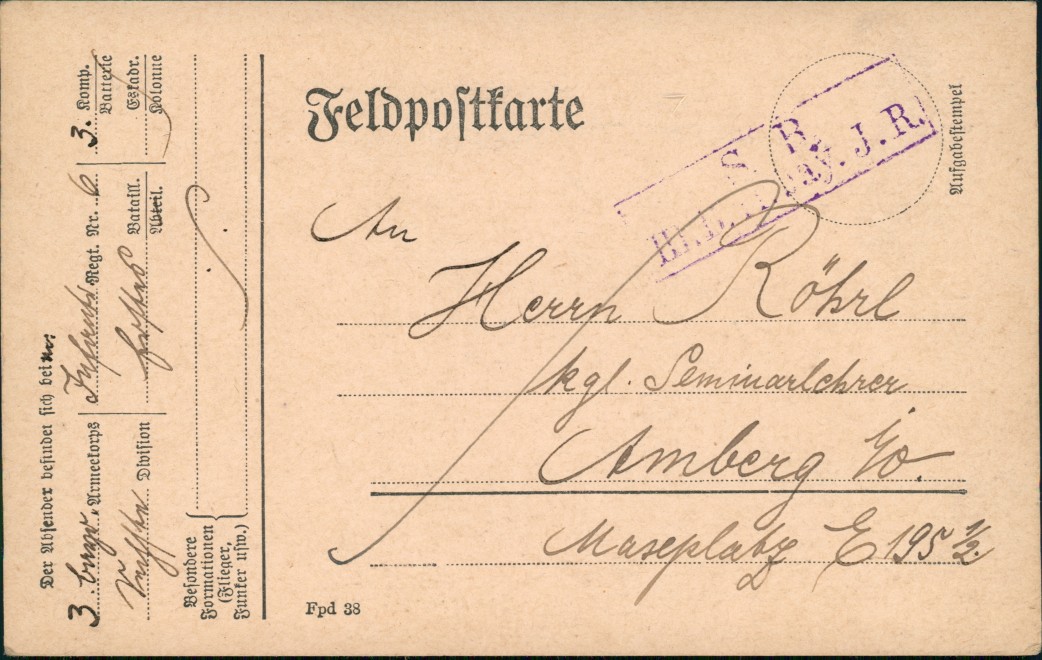 Feldpostkarte
Aufgabestempel
S. B.
bay. J. R.
An
Herrn Röhrl
kgl. Seminarlehrer
Amberg i/o.
E 195 1/2.
Fpd 38
Der Absender befindet sich beim:
3. bayr. Armeekorps Infanterie Regt. Nr. 6 3. Komp.
Batterie
Division Bataill. Eskadr.
Abteil. Kolonne
Besondere
Formationen
(Flieger,
Funker usw.)